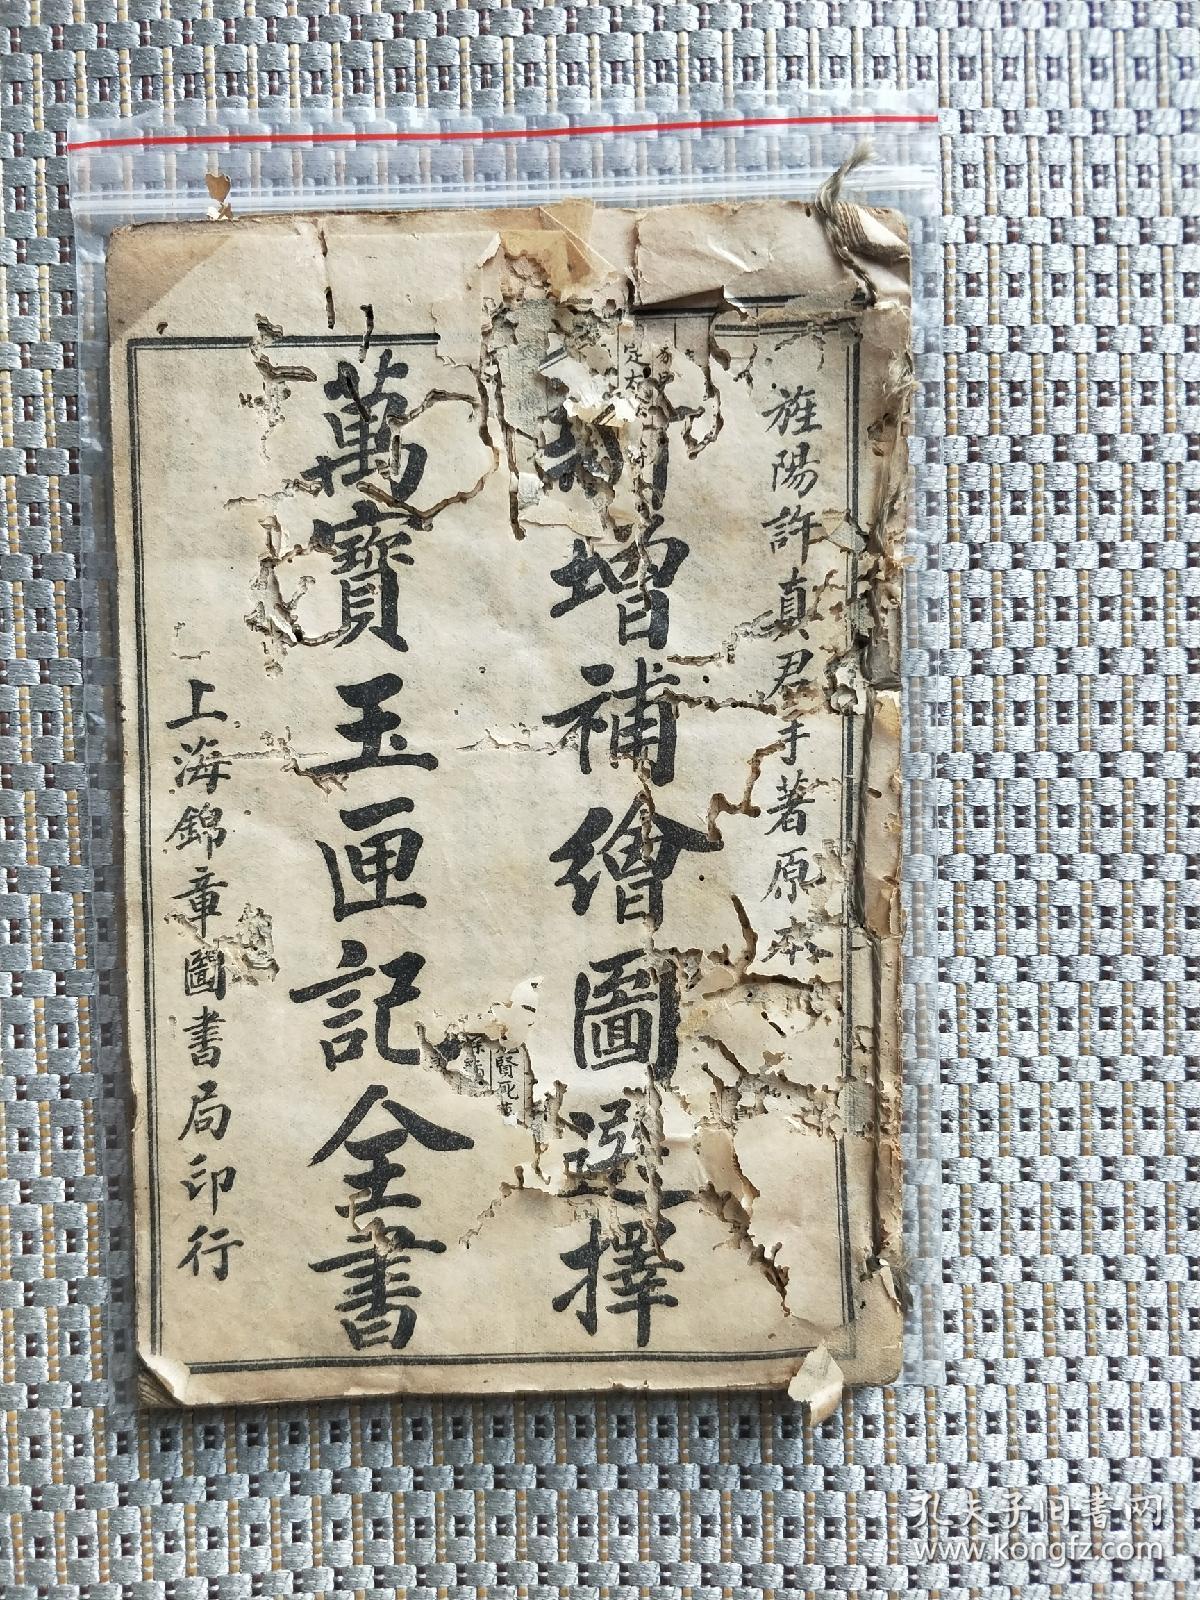 旌陽許真君手著原本
新增補繪圖選擇
萬寶玉匣記全書
上海錦章圖書局印行
定本
賢死
孔夫子旧书网
www.kongfz.com